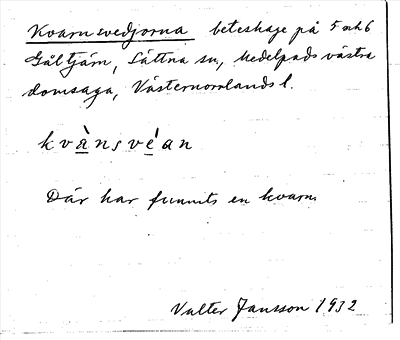 Kvarnsvedjorna beteshage på 5 och 6
Gåltjärn, Sättna sn, Medelpads västra
domsaga, Västernorrlands l.
kvànsvéan
Där har funnits en kvarn.
Valter Jansson 1932